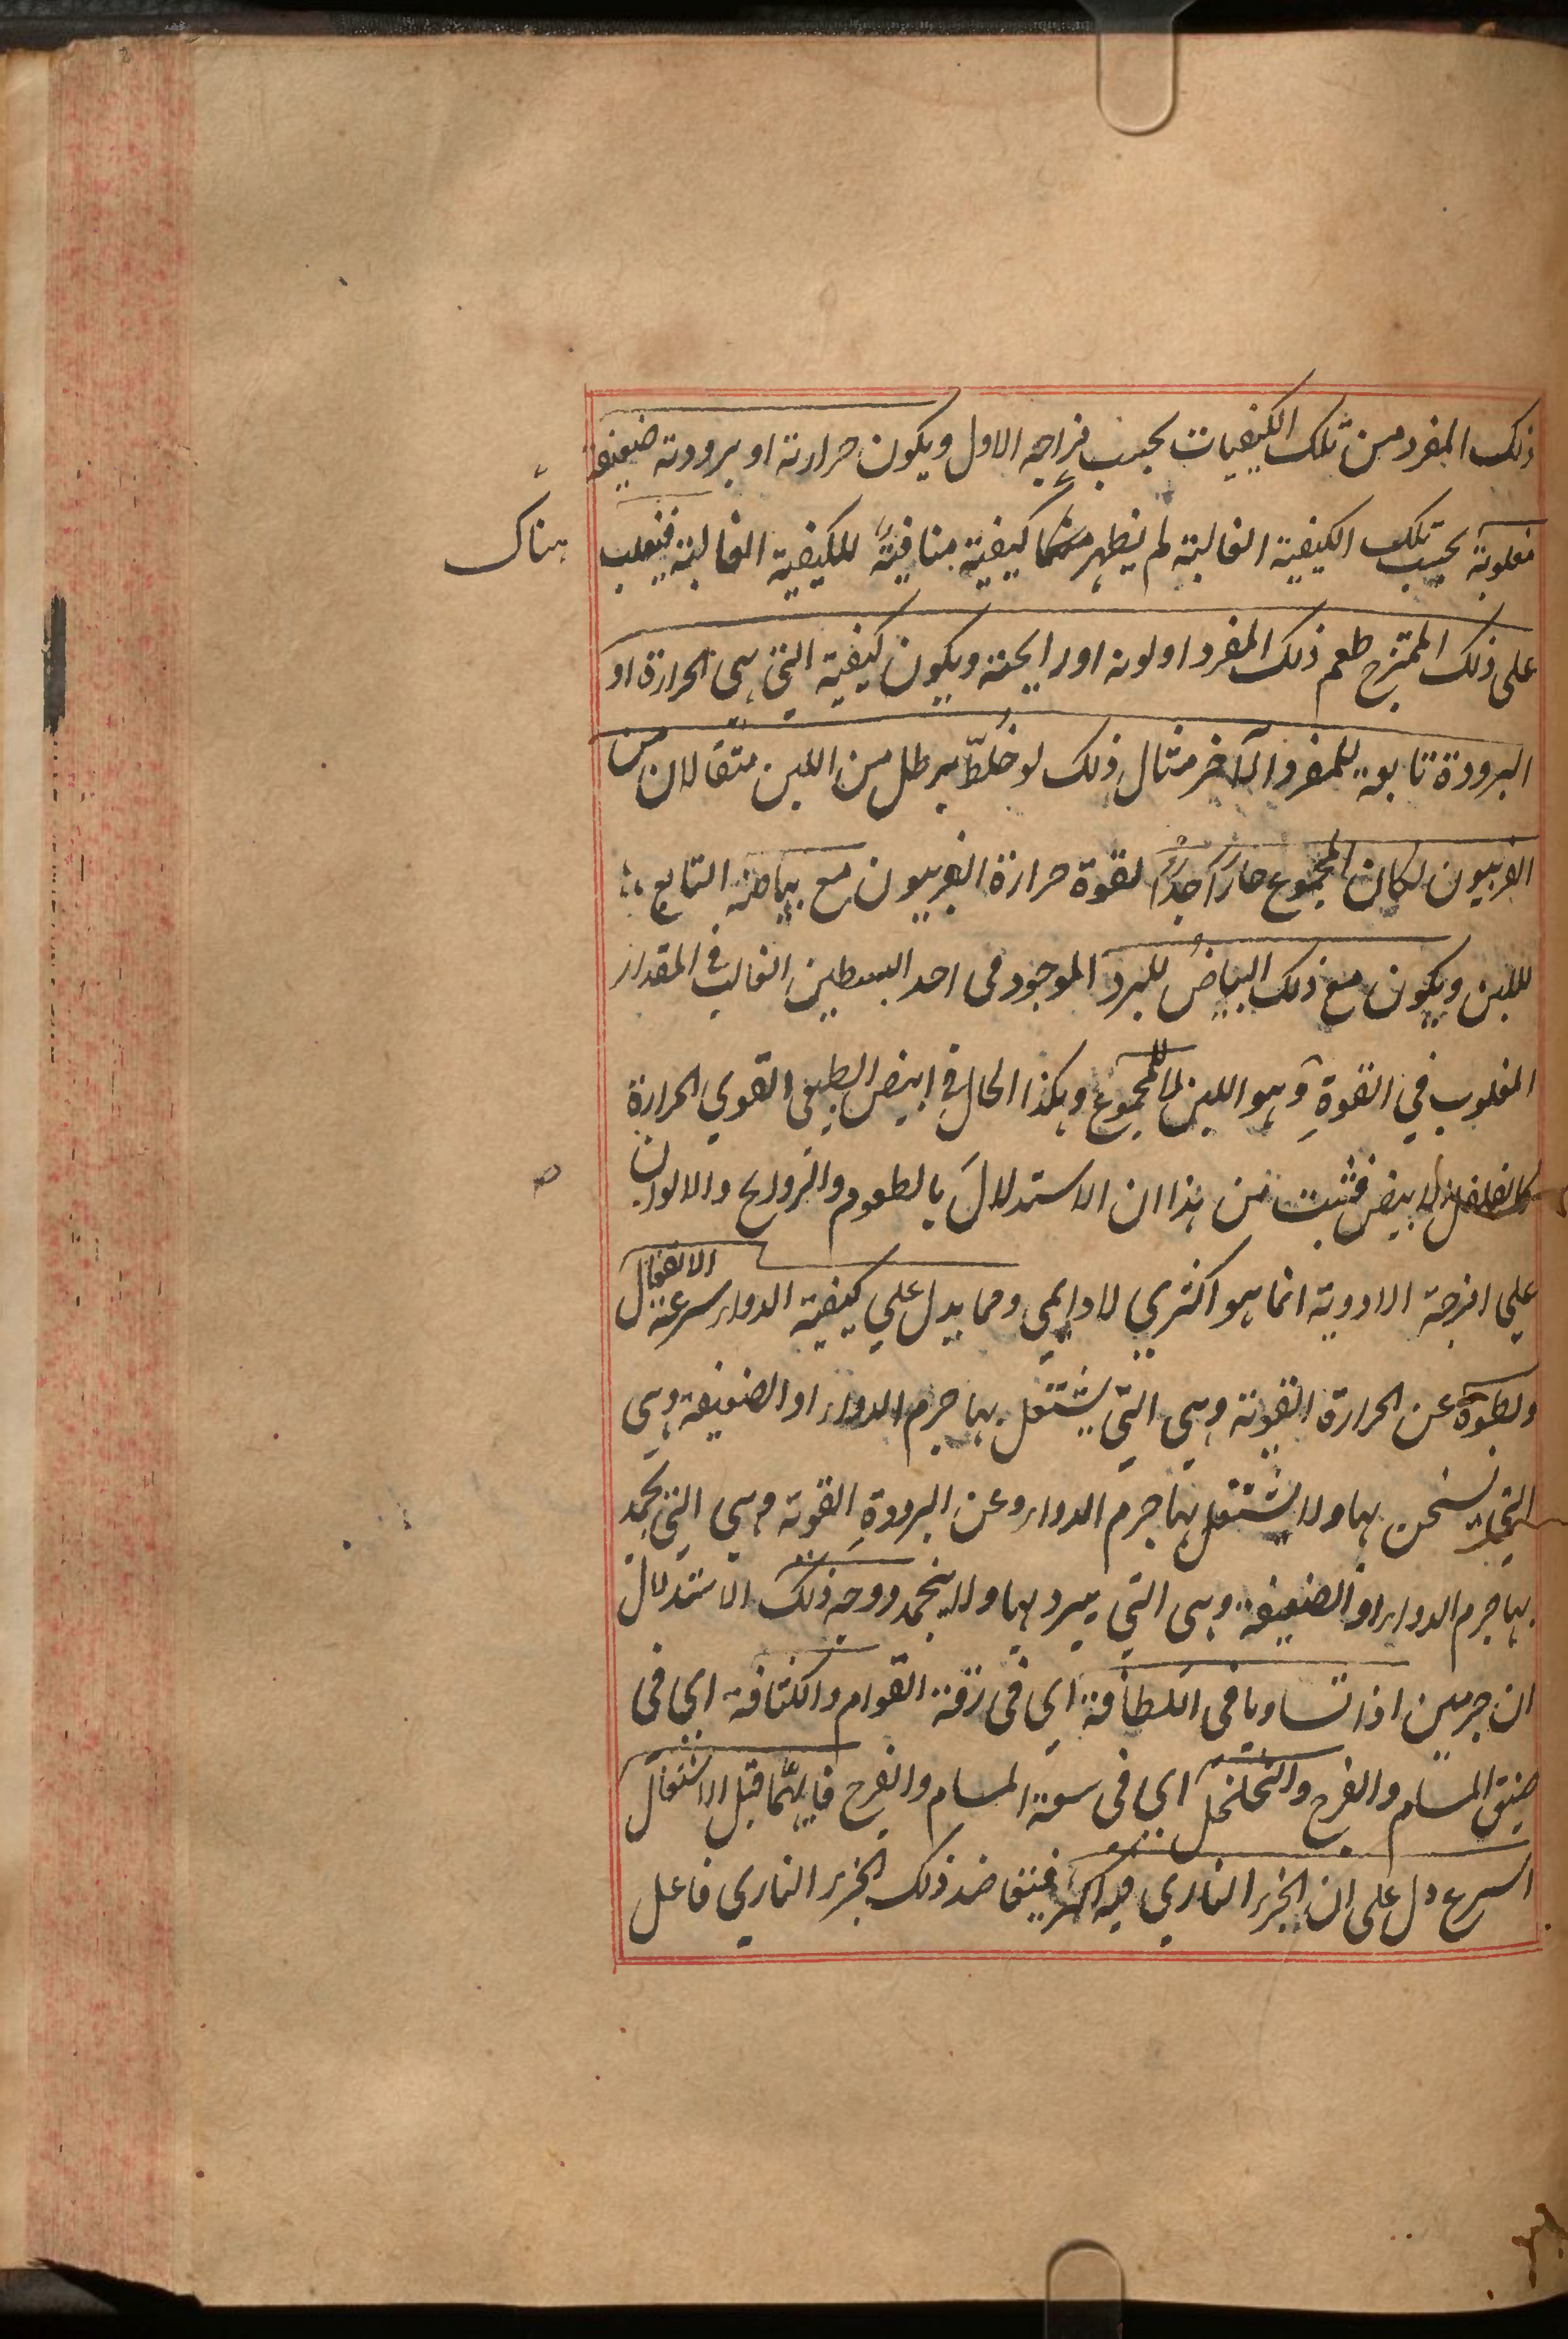 ذلك المفرد من تلك الكيفيات بحسب مزاجه الاول ويكون حرارته او برودته ضعيفة
مغلوبة بحسب تلك الكيفية الغالبة لم يظهر منها كيفية منافية للكيفية الغالبة فيغلب
هناك
على ذلك الممتزج طعم ذلك المفرد او لونه او رايحته ويكون كيفية التي هي الحرارة او
البرودة تابعة للمفرد الآخر مثال ذلك لو خلط برطل من اللبن مثقالان من
الفربيون لكان المجموع حارا جدا لقوة حرارة الفربيون مع بياضه التابع
لللبن ويكون مع ذلك البياض للبرد الموجود في احد البسطين الغالب في المقدار
المغلوب في القوة وهو اللبن لا للمجموع وهكذا الحال في ابيض الطبيعي القوي الحرارة
كالفلفل الابيض فثبت من هذا ان الاستدلال بالطعوم والروايح والالوان
على امزجة الادوية انما هو اكثري لا دايمي ومما يدل على كيفية الدواء سرعة الانفعال
وبطوءه عن الحرارة القوية وهي التي يشتعل بها جرم الدواء او الضعيفة وهي
التي يسخن بها ولا يشتعل بها جرم الدواء وعن البرودة القوية وهي التي يجمد
بها جرم الدواء او الضعيفة وهي التي يبرد بها ولا ينجمد ووجه ذلك الاستدلال
ان جرمين اذا تساويا في اللطافة اي في رقة القوام والكثافة اي في
ضيق المسام والفرج والتخلخل اي في سعة المسام والفرج فايهما قبل الاشتعال
اسرع دل على ان الجزء الناري فيه اكثر فيتعاضد ذلك الجزء الناري فاعل